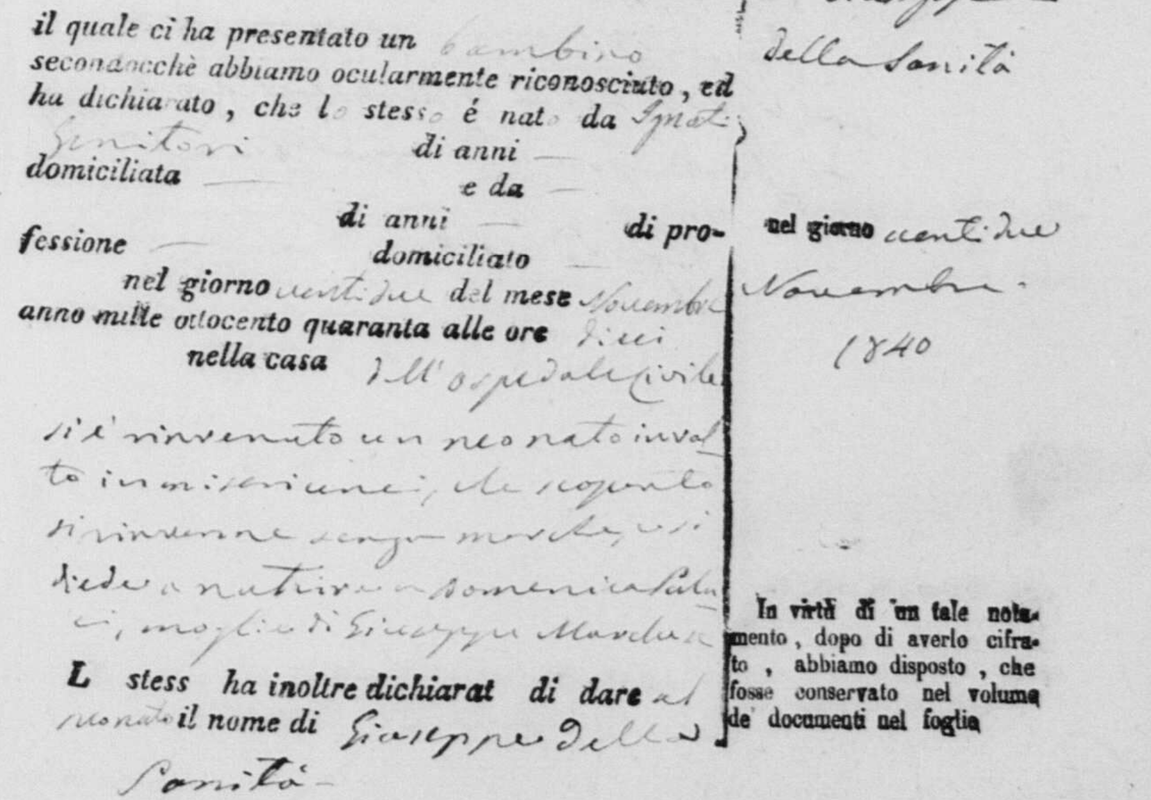 il quale ci ha presentato un bambino
secondocchè abbiamo ocularmente riconosciuto, ed
ha dichiarato, che lo stesso é nato da Ignoti
Genitori di anni —
domiciliata — e da —
di anni — di pro-
fessione — domiciliato —
nel giorno ventidue del mese Novembre
anno mille ottocento quaranta alle ore dieci
nella casa dell' Ospedale Civile
si è rinvenuto un neonato invol
to in miseri cenci, che scoperto
si rinvenne senza marche, e si
diede a nutrire a Domenica
moglie di Giuseppe
L stess ha inoltre dichiarat di dare al
neonato il nome di Giuseppe Della
Sanità -
della Sanità
nel giorno ventidue
Novembre.
1840
In virtù di un tale nota-
mento, dopo di averlo cifra-
to, abbiamo disposto, che
fosse conservato nel volume
de' documenti nel foglio